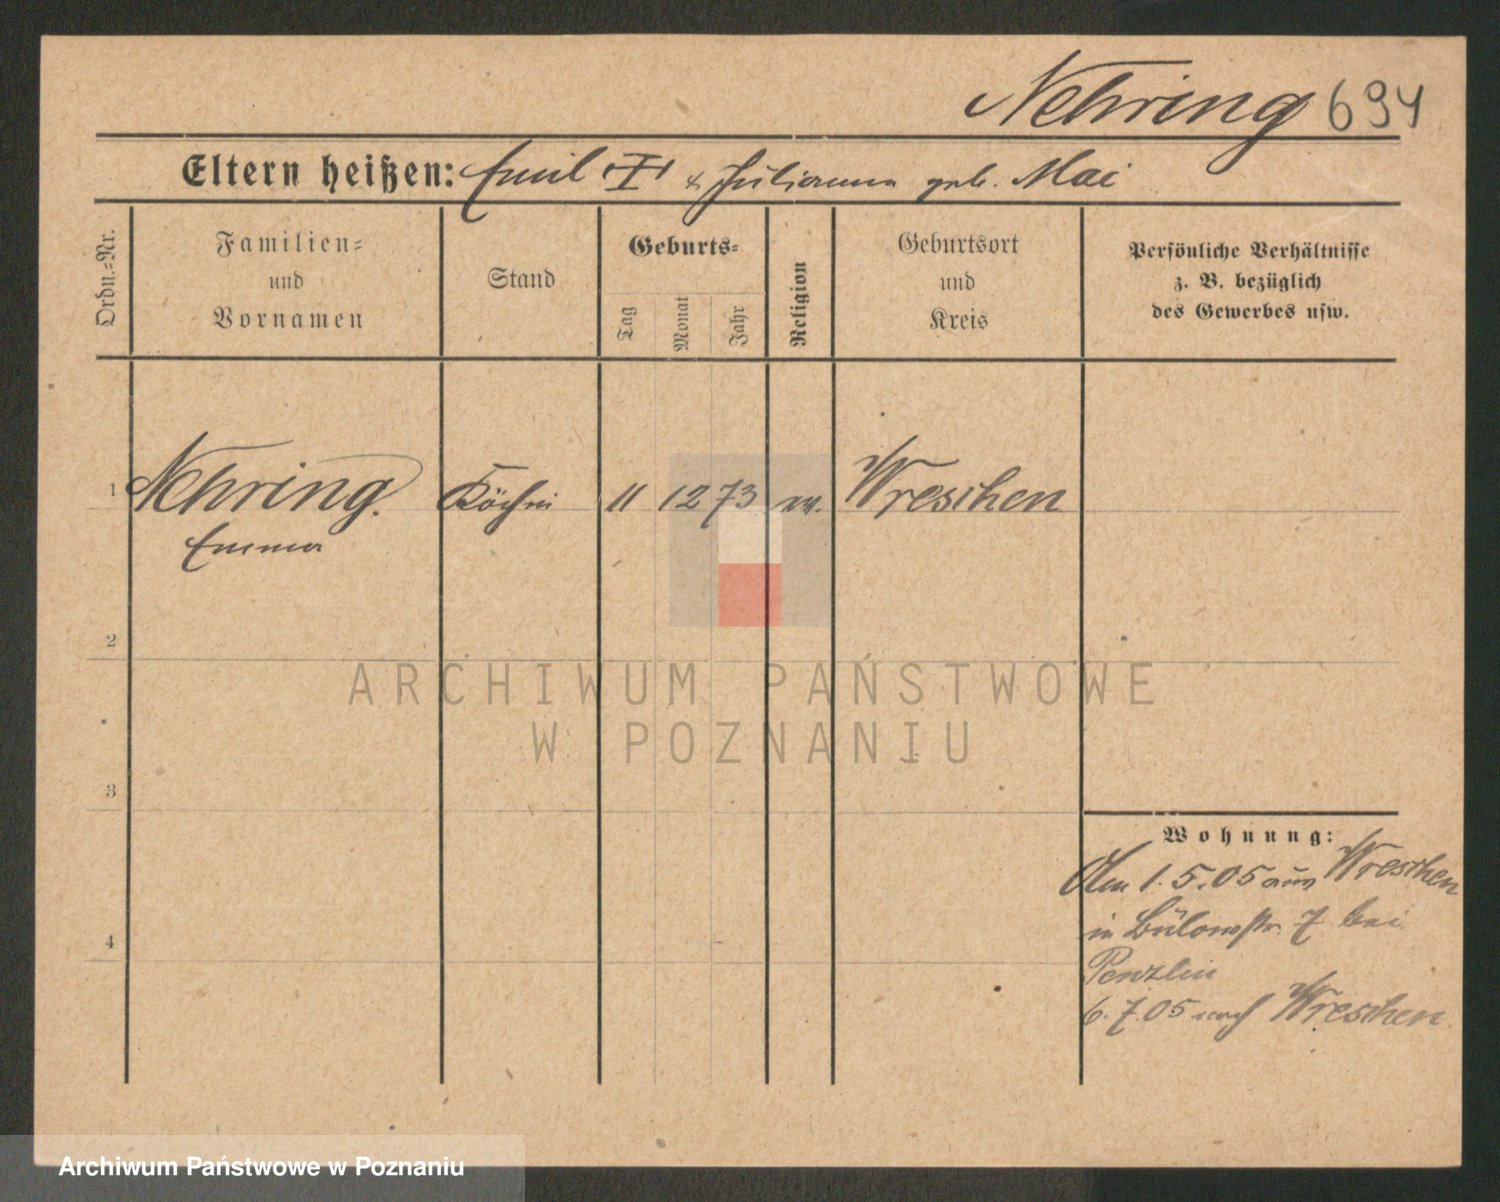 Nehring 694
Eltern heißen: Emil & Julianna geb. Mai
Ordn.=Nr.
Familien=
und
Vornamen
Stand
Geburts=
Tag
Monat
Jahr
Religion
Geburtsort
und
Kreis
Persönliche Verhältnisse
z. B. bezüglich
des Gewerbes usw.
1 Nehring. Köchin 11 12 73 ev. Wreschen
Emma
2
3
4
Wohnung:
Am 1. 5. 05 aus Wreschen
in Bülowstr. 7 bei
Penzlin
6. 7. 05 nach Wreschen
ARCHIWUM PAŃSTWOWE
W POZNANIU
Archiwum Państwowe w Poznaniu